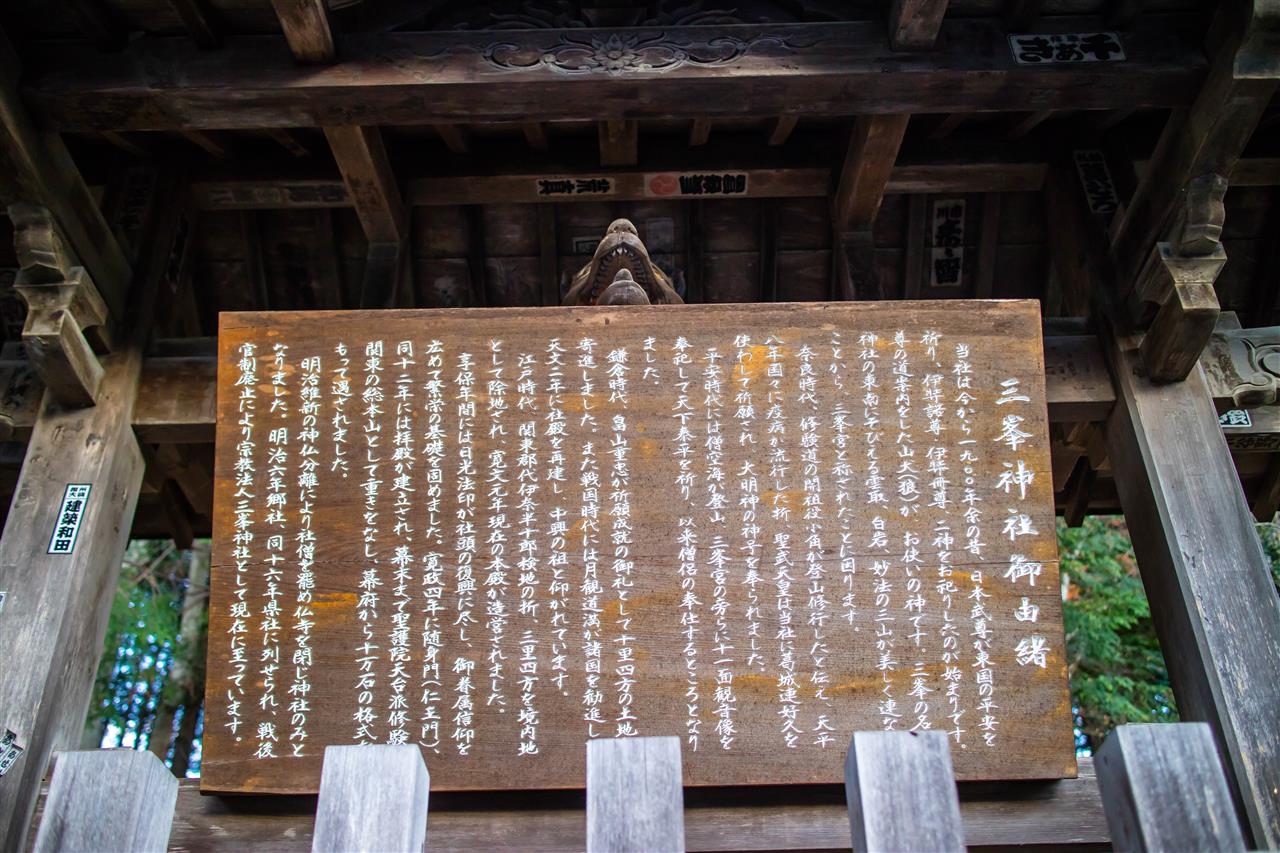 三峯神社御由緒
当社は今から一九〇〇年余の昔、日本武尊が東国の平安を
祈り、伊弉諾尊・伊弉册尊二神をお祀りしたのが始まりです。
尊の道案内をした山犬(狼)が、お使いの神です。三峯の名は
神社の東南にそびえる雲取、白岩、妙法の三山が美しく連なる
ことから、三峯宮と称されたことに因ります
奈良時代、修験道の開祖役小角が登山修行したと伝え、天平
八年国々に疫病が流行した折、聖武天皇は当社に葛城連好久を
使わして祈願され、大明神の神号を奉られました。
平安時代には僧空海が登山、三峯宮の旁らに十一面観音像を
奉祀して天下泰平を祈り、以来僧侶の奉仕するところとなり
ました。
鎌倉時代、畠山重忠が祈願成就の御礼として十里四方の土地を
寄進しました。また戦国時代には月観道満が諸国を勧進し
天文二年に社殿を再建し、中興の祖と仰がれています。
江戸時代、関東郡代伊奈半十郎検地の折、三里四方を境内地
として除地され、寛文元年現在の本殿が造営されました。
享保年間には日光法印が社頭の復興に尽し、御眷属信仰を
広めて繁栄の基礎を固めました。寛政四年に随身門(仁王門)、
同十二年には拝殿が建立され、幕末まで聖護院天台派修験
関東の総本山として重きをなし、幕府から十万石の格式を
もって遇されました。
明治維新の神仏分離により社僧を罷め仏寺を閉じ神社のみと
なりました。明治六年郷社、同十六年県社に列せられ、戦後
官制廃止により宗教法人三峯神社として現在に至っています。
建築和田
千あさ